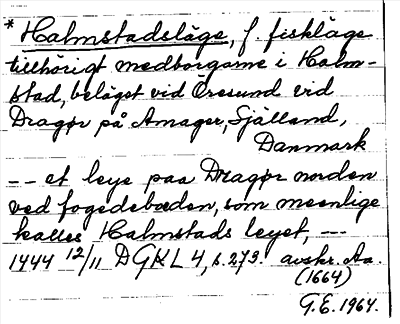 * Halmstadsläge, f. fiskläge
tillhörigt medborgarne i Halm-
stad, beläget vid Öresund vid
Dragør på Amager, Själland,
Danmark
-- et leye paa Dragør norden
ved fogedeboeden, som meenlige
kalles Halmstads leyet, --
1444 12/11 DGKL 4, s. 273. avskr. Aa.
(1664)
G.E. 1964.